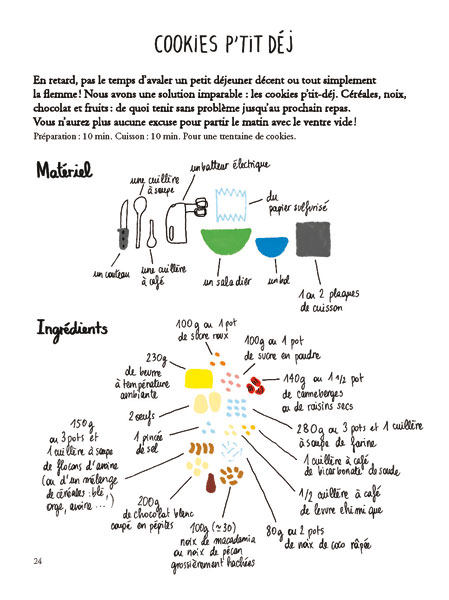 COOKIES P'TIT DÉJ
En retard, pas le temps d'avaler un petit déjeuner décent ou tout simplement
la flemme! Nous avons une solution imparable : les cookies p'tit-déj. Céréales, noix,
chocolat et fruits : de quoi tenir sans problème jusqu'au prochain repas.
Vous n'aurez plus aucune excuse pour partir le matin avec le ventre vide!
Préparation : 10 min. Cuisson : 10 min. Pour une trentaine de cookies.
Matériel
un batteur électrique
une cuillère
à soupe
du
papier sulfurisé
un couteau
une cuillère
à café
un saladier
un bol
1 ou 2 plaques
de cuisson
Ingrédients
100g ou 1 pot
de sucre roux
100g ou 1 pot
de sucre en poudre
230g
de beurre
à température
ambiante
140g ou 1 1/2 pot
de canneberges
ou de raisins secs
2 œufs
280g ou 3 pots et 1 cuillère
à soupe de farine
150g
ou 3 pots et
1 cuillère à soupe
de flocons d'avoine
(ou d'un mélange
de céréales : blé,
orge, avoine...)
1 pincée
de sel
1 cuillère à café
de bicarbonate de soude
1/2 cuillère à café
de levure chimique
200g
de chocolat blanc
coupé en pépites
100g (≃30)
noix de macadamia
ou noix de pécan
grossièrement hachées
80g ou 2 pots
de noix de coco râpée
24